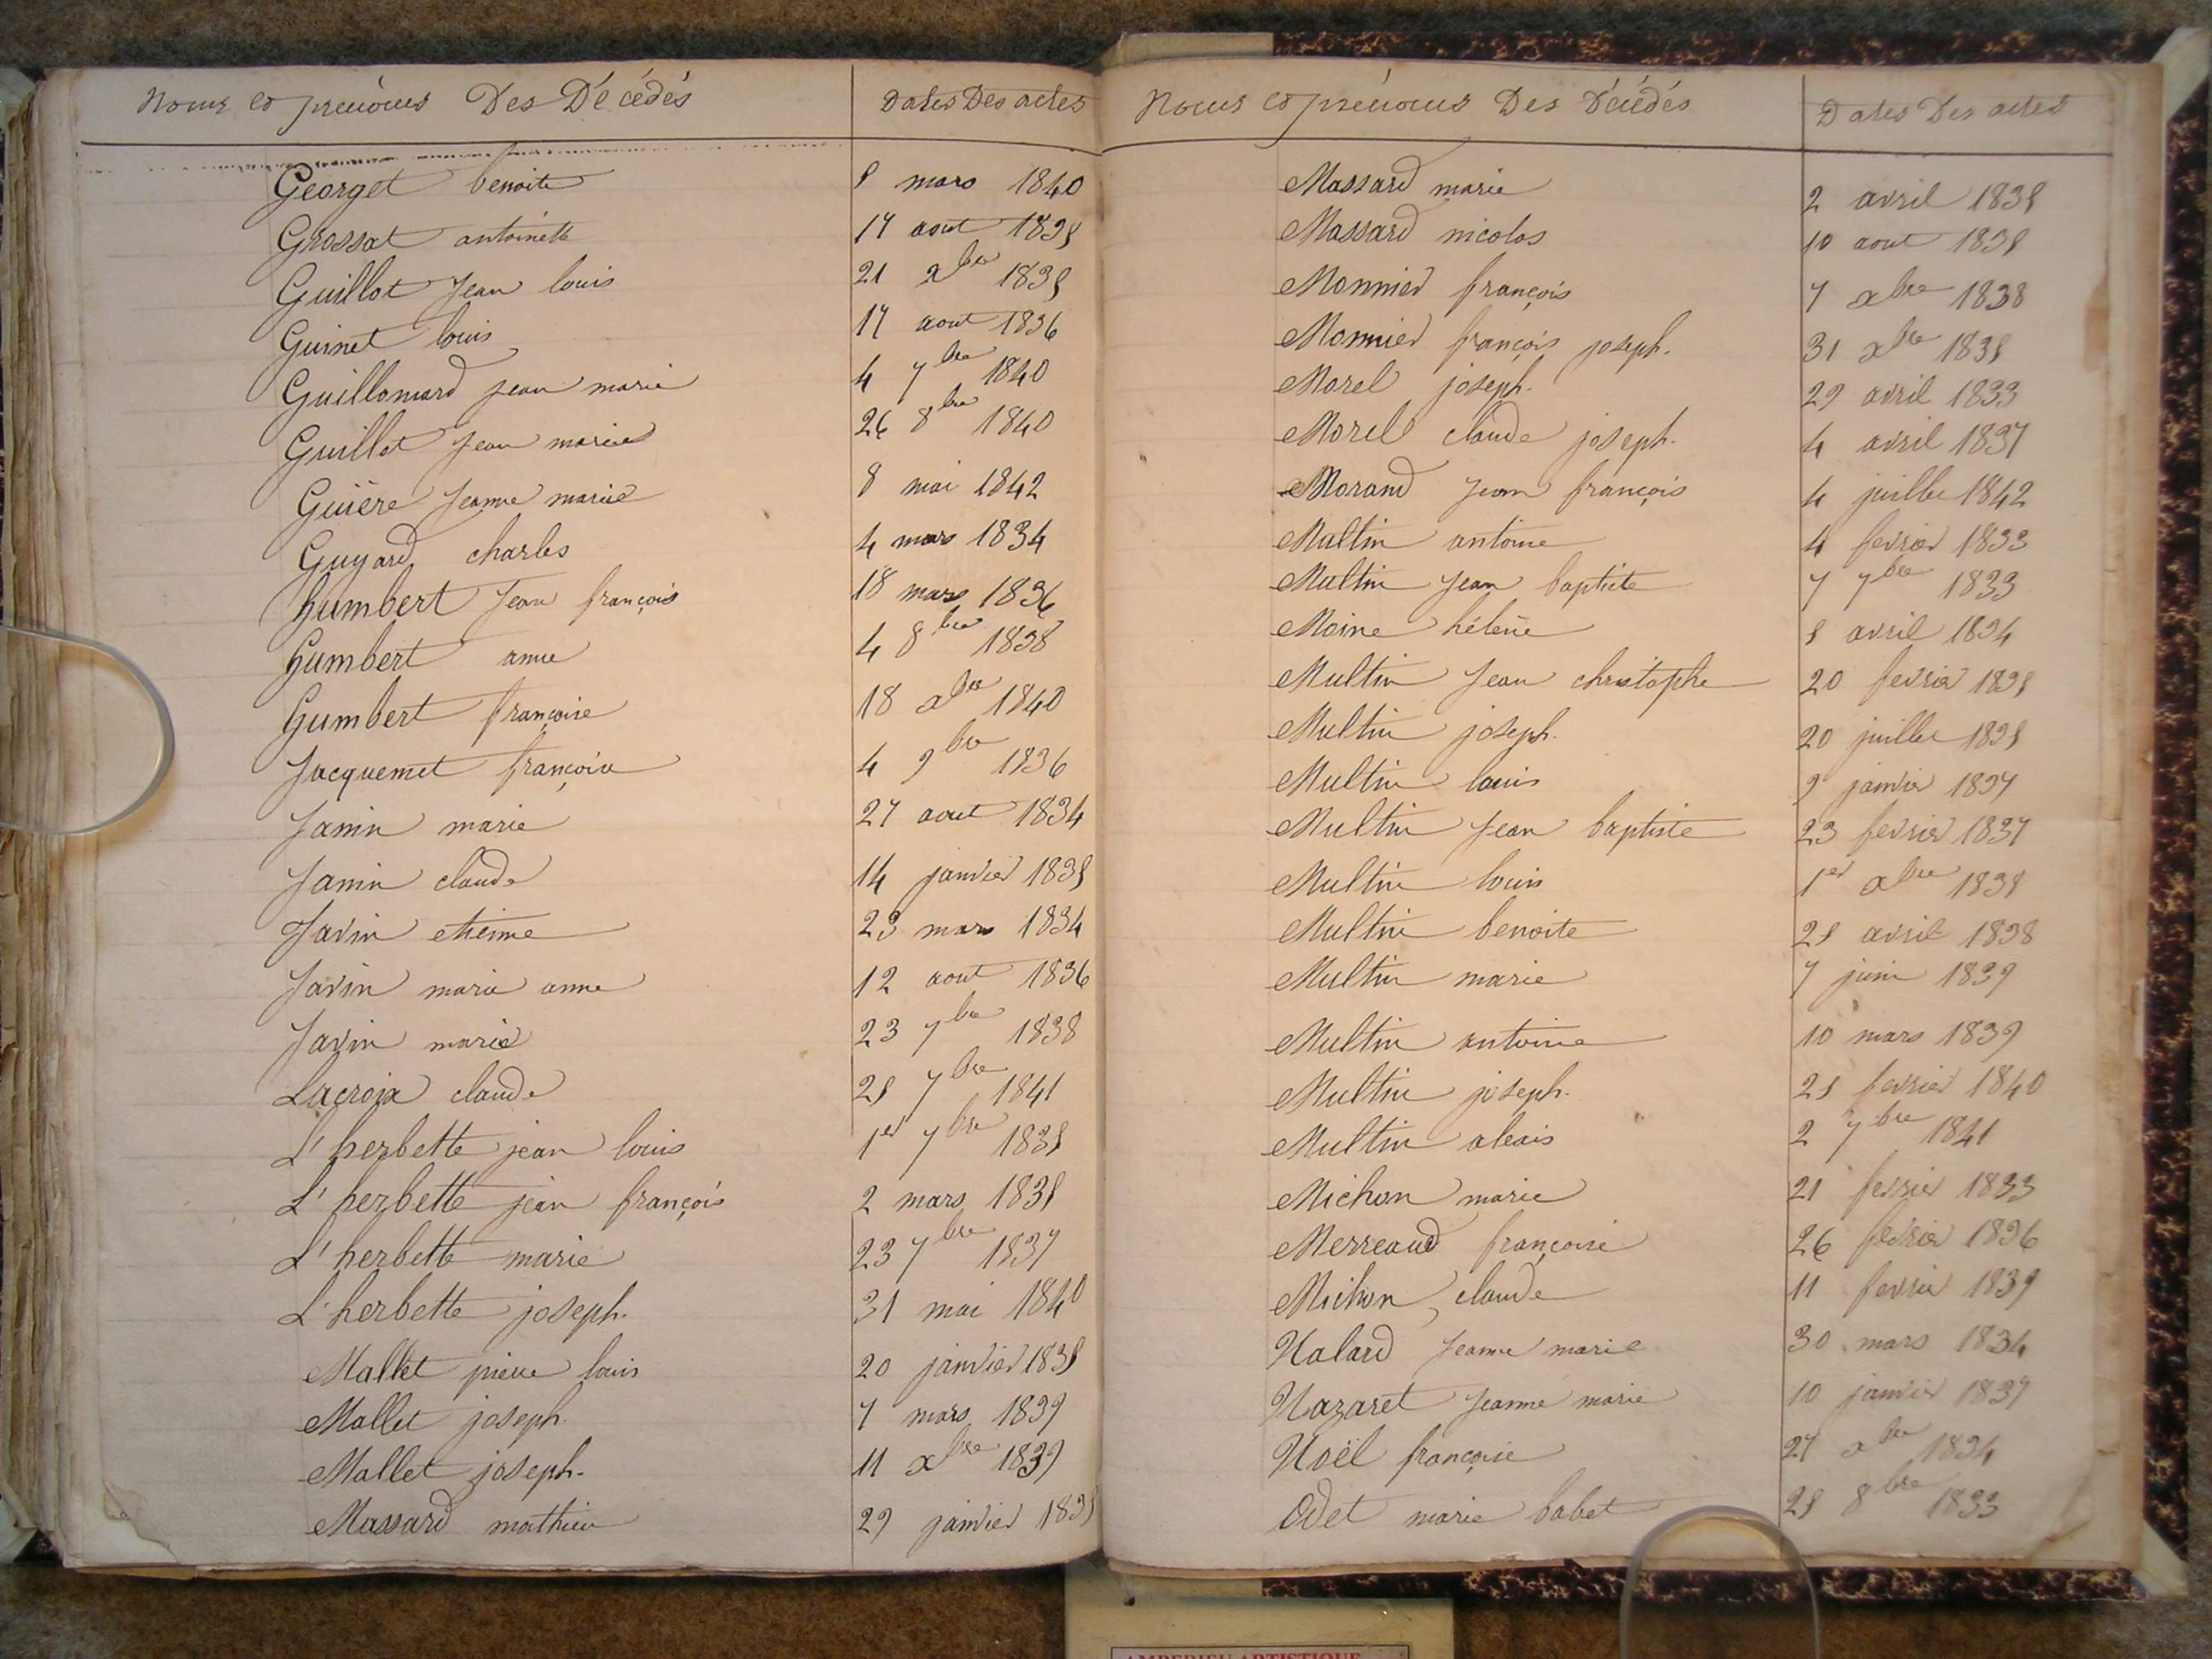 Noms et prénoms Des Décédés Dates Des actes
Georget benoite 5 mars 1840
Grossat antoinette 17 aout 1835
Guillot Jean louis 21 xbre 1835
Guinet louis 17 aout 1836
Guillomard jean marie 4 7bre 1840
Guillot Jean marie 26 8bre 1840
Guière Jeanne marie 8 mai 1842
Guyard charles 4 mars 1834
humbert Jean françois 18 mars 1836
humbert anne 4 8bre 1838
humbert françoise 18 xbre 1840
Jacquemet 4 9bre 1836
Janin marie 27 aout 1834
Janin claude 14 janvier 1835
Javin etienne 23 mars 1834
Javin marie anne 12 aout 1836
Javin marie 23 7bre 1838
Lacroix claude 25 7bre 1841
L'herbette jean louis 1er 7bre 1835
L'herbette jean françois 2 mars 1835
L'herbette marie 23 7bre 1837
L'herbette joseph. 31 mai 1840
Mallet pierre louis 20 janvier 1835
Mallet joseph. 7 mars 1839
Mallet joseph. 11 xbre 1839
Massard mathieu 29 janvier 1835
Noms et prénoms Des Décédés Dates Des actes
Massard marie 2 avril 1835
Massard nicolas 10 aout 1835
Monnier françois 7 xbre 1838
Monnier françois joseph. 31 xbre 1835
Morel joseph. 29 avril 1833
Morel claude joseph. 4 avril 1837
Morand Jean françois 4 juillet 1842
Multin antoine 4 fevrier 1833
Multin Jean baptiste 7 7bre 1833
Moine hélène 5 avril 1834
Multin Jean christophe 20 fevrier 1835
Multin joseph. 20 juillet 1835
Multin louis 9 janvier 1837
Multin Jean baptiste 23 fevrier 1837
Multin louis 1er xbre 1835
Multin benoite 25 avril 1838
Multin marie 7 juin 1839
Multin antoine 10 mars 1839
Multin joseph. 25 fevrier 1840
Multin alexis 2 7bre 1841
Michon marie 21 fevrier 1833
Merreaud françoise 26 fevrier 1836
Michon claude 11 fevrier 1839
Nalard Jeanne marie 30 mars 1834
Nazaret Jeanne marie 10 janvier 1837
Noël françoise 27 xbre 1834
Odet marie babet 25 8bre 1833